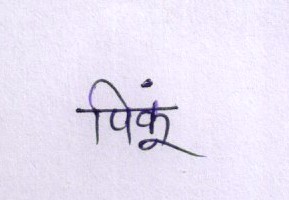 पिकूं